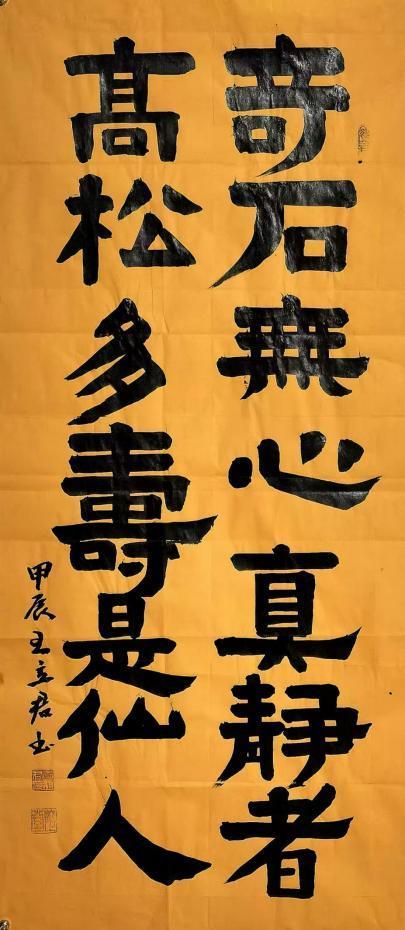 奇石無心真靜者
髙松多壽是仙人
甲辰王立君书